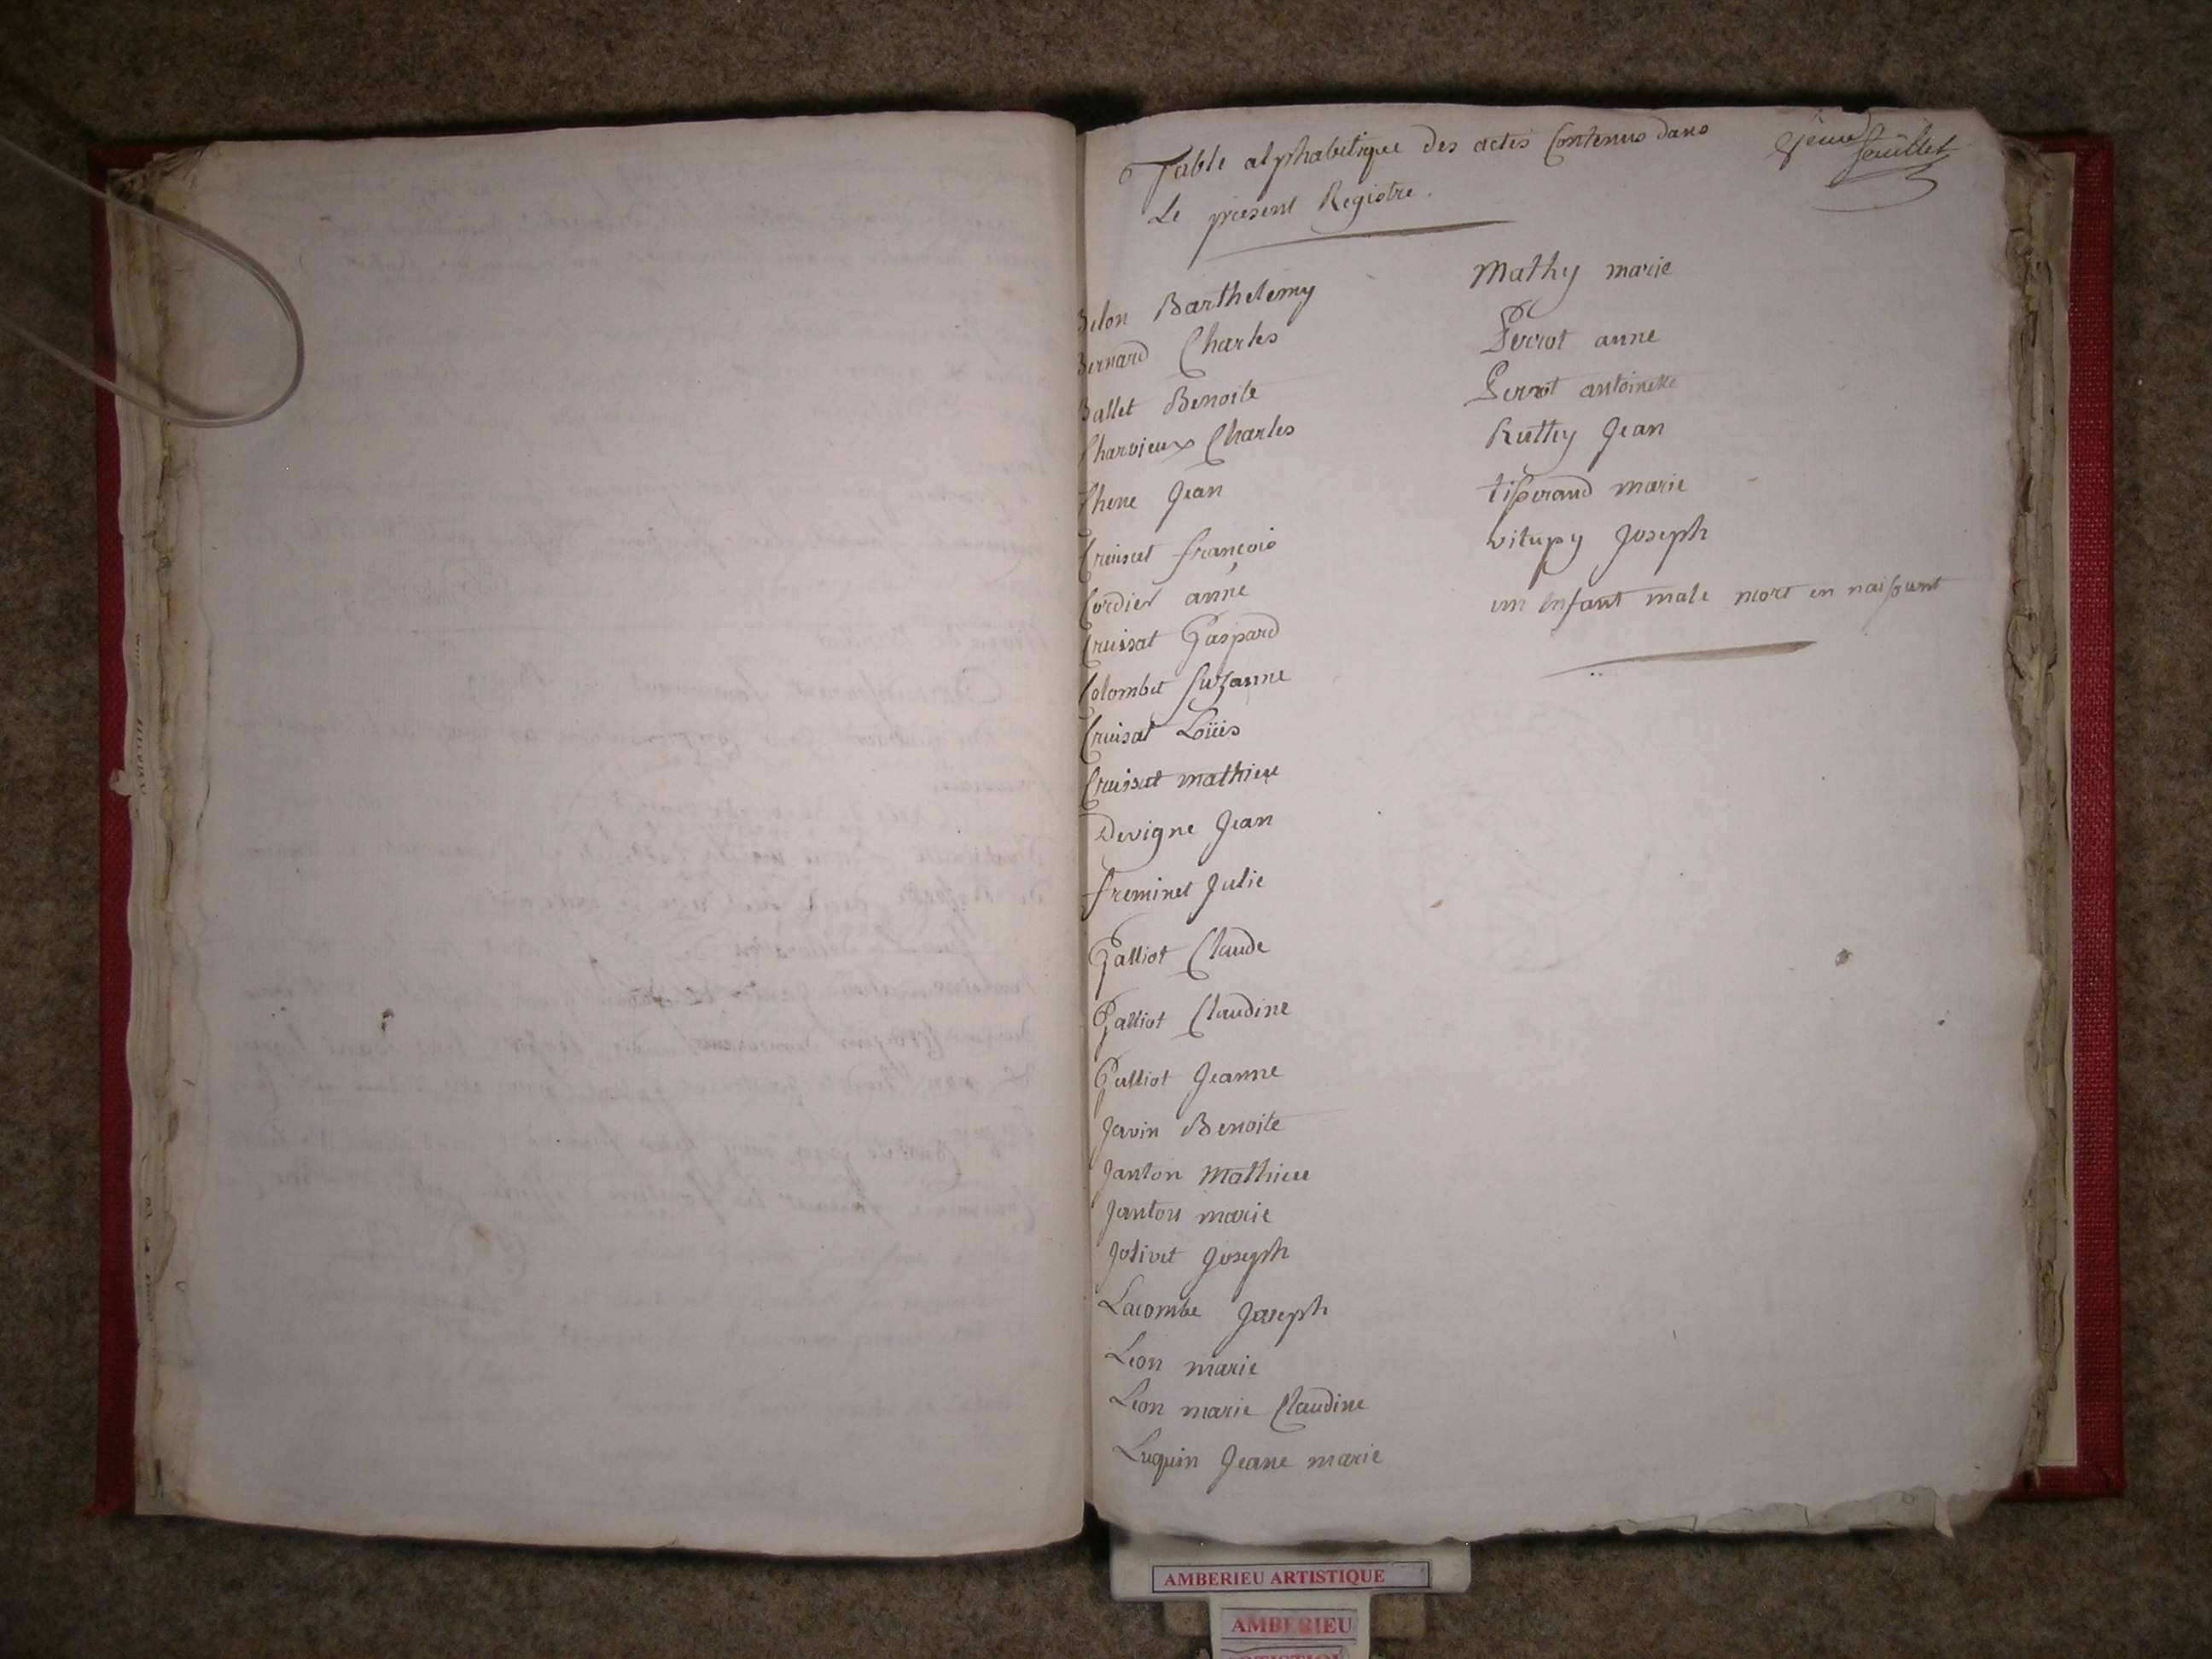 Table alphabetique des actes Contenus dans
Le present Registre.
feuillet
Belon Barthelemy
Bernard Charles
Ballet Benoite
Charvieux Charles
Chene Jean
Cruisat françois
Cordier anne
Cruissat Gaspard
Colombet Suzanne
Cruisat Loüis
Cruissat mathieu
Devigne Jean
freminet Julie
Galliot Claude
Galliot Claudine
Galliot Jeanne
Javin Benoite
Janton Mathieu
Janton marie
Jolivet Joseph
Lacombe Joseph
Leon marie
Leon marie Claudine
Luquin Jeane marie
Mathy marie
Perrot anne
Perrot antoinette
Ruthy Jean
tisserand marie
vitupy Joseph
un enfant male mort en naissant
AMBERIEU ARTISTIQUE
AMBERIEU